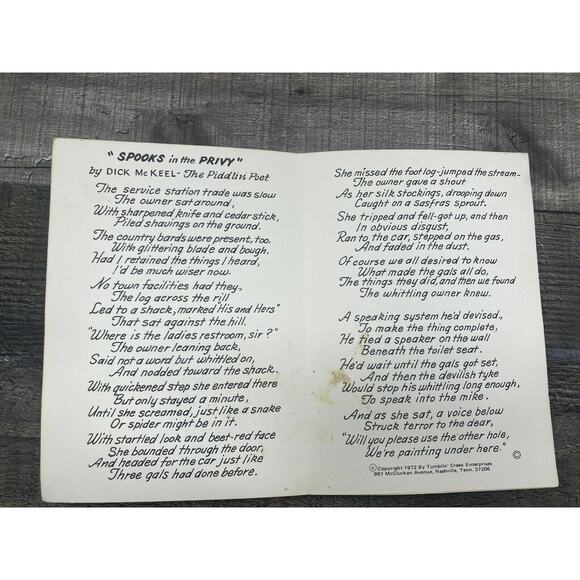 "SPOOKS in the PRIVY"
by DICK McKEEL - The Piddlin Poet
The service station trade was slow
The owner sat around,
With sharpened knife and cedar stick,
Piled shavings on the ground.
The country bards were present, too.
With glittering blade and bough,
Had I retained the things I heard,
I'd be much wiser now.
No town facilities had they,
The log across the rill
Led to a shack, marked "His and Hers"
That sat against the hill.
"Where is the ladies restroom, sir?"
The owner leaning back,
Said not a word but whittled on,
And nodded toward the shack.
With quickened step she entered there
But only stayed a minute,
Until she screamed, just like a snake
Or spider might be in it.
With startled look and beet-red face
She bounded through the door,
And headed for the car just like
Three gals had done before.
She missed the foot log-jumped the stream-
The owner gave a shout
As her silk stockings, drooping down
Caught on a sasfras sprout.
She tripped and fell-got up, and then
In obvious disgust,
Ran to the car, stepped on the gas,
And faded in the dust.
Of course we all desired to know
What made the gals all do,
The things they did, and then we found
The whittling owner knew.
A speaking system he'd devised.,
To make the thing complete,
He tied a speaker on the wall
Beneath the toilet seat.
He'd wait until the gals got set,
And then the devilish tyke
Would stop his whittling long enough,
To speak into the mike.
And as she sat, a voice below
Struck terror to the dear,
"Will you please use the other hole,
We're painting under here."
©
© Copyright 1972 By Tumblin' Creek Enterprises
901 McClurkan Avenue, Nashville, Tenn. 37206